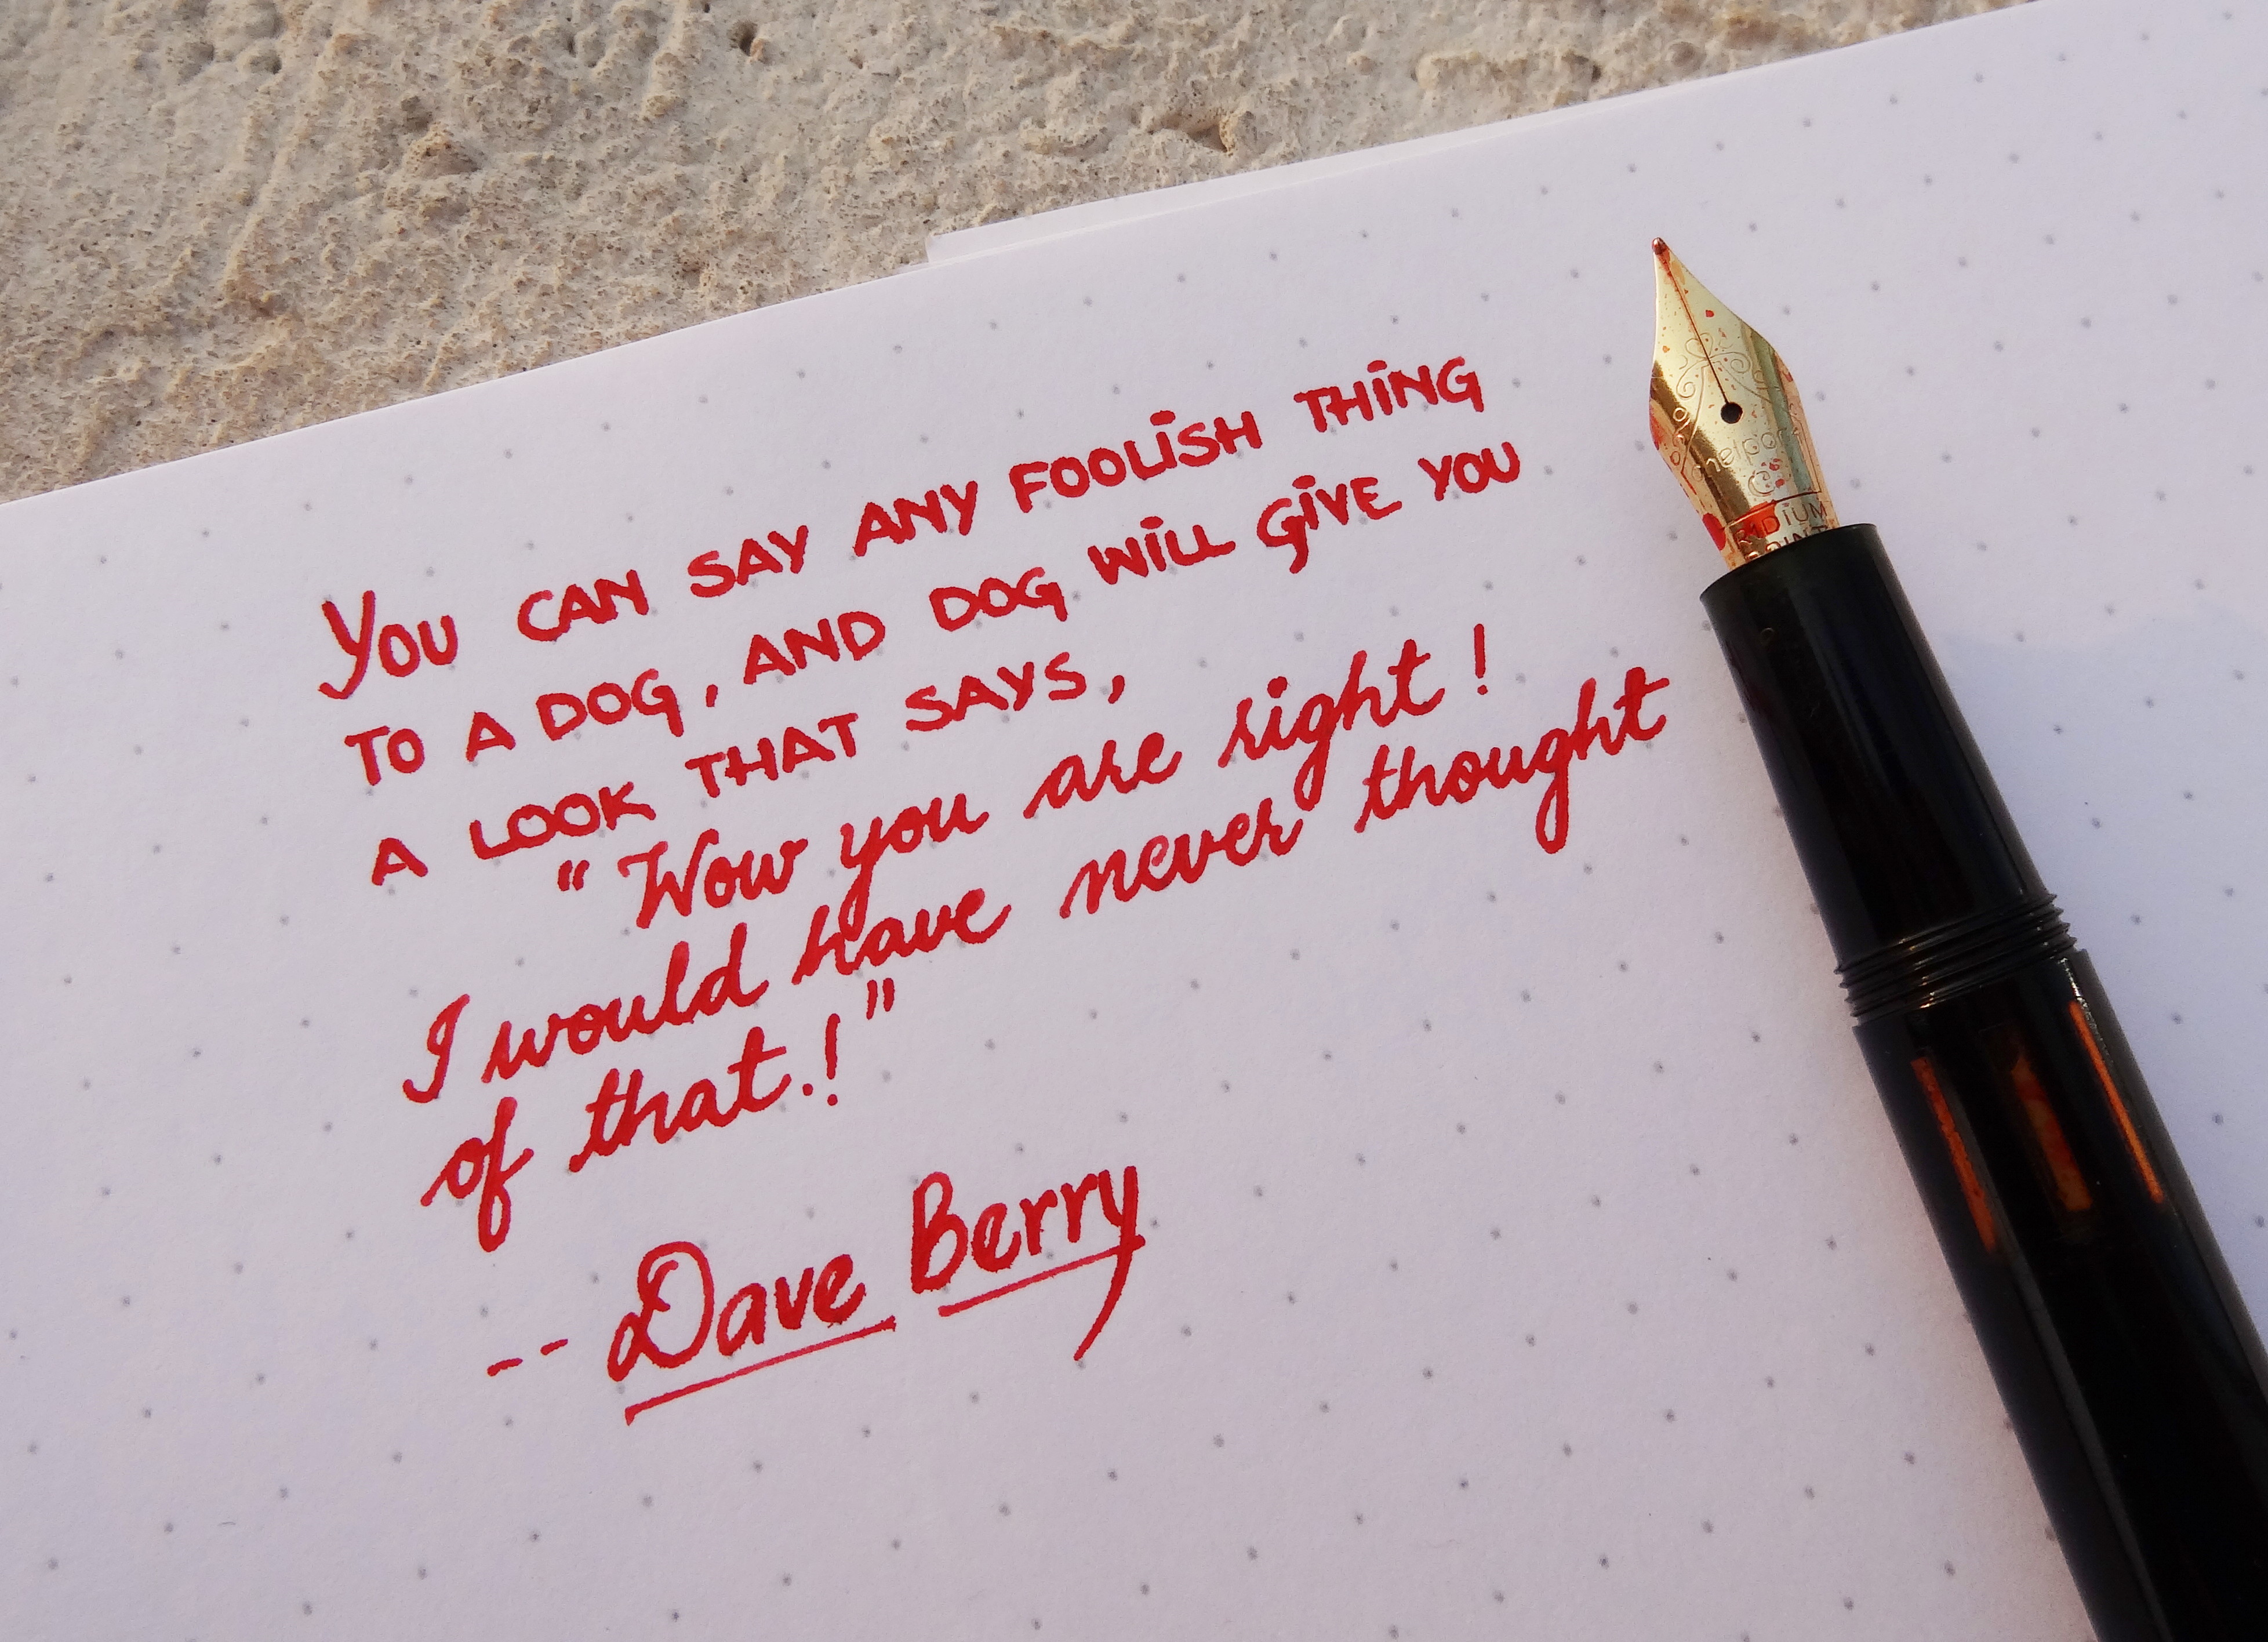 You CAN SAY ANY FOOLiSH THiNG
TO A DOG, AND DOG WiLL GiVE YOU
A LOOK THAT SAYS,
"Wow you are right!
I would have never thought
of that.!"
-- Dave Berry